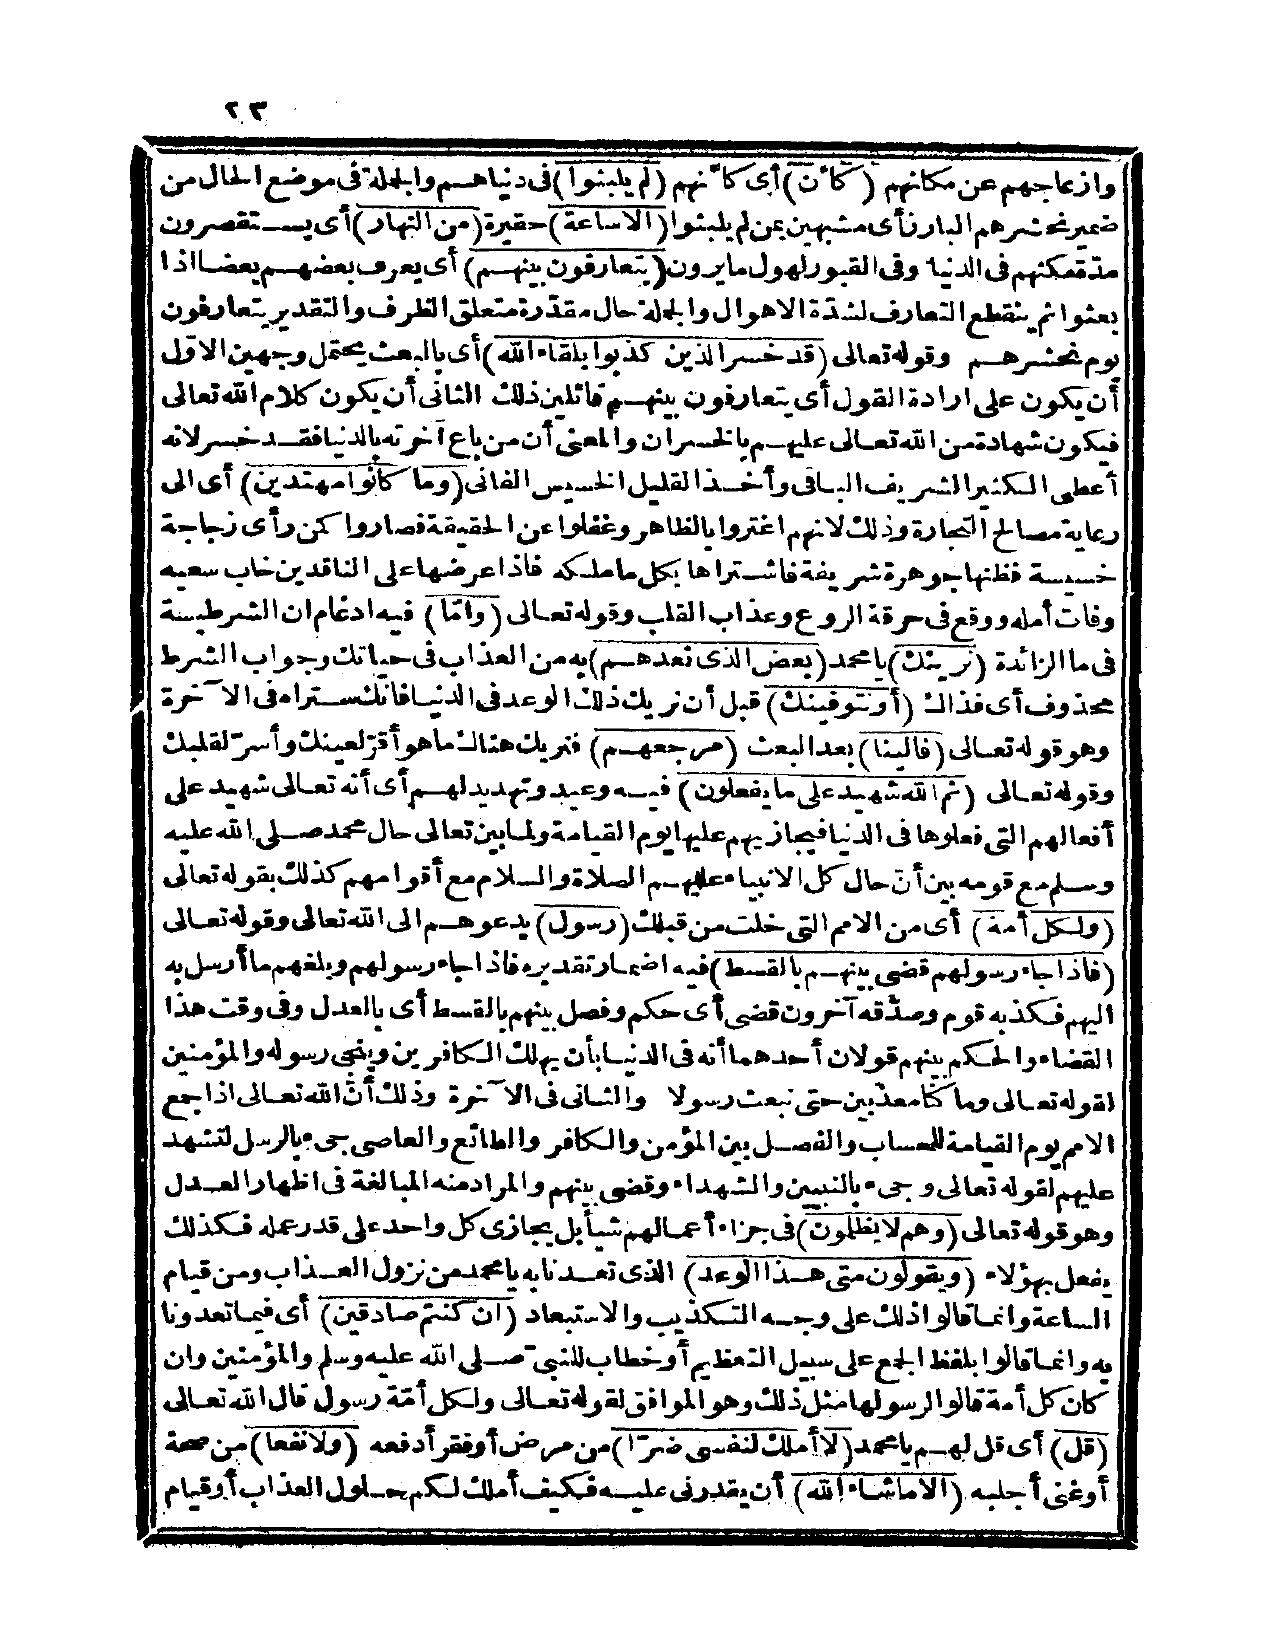 ٢٣
وازعاجهم عن مكانهم (كأن) أى كأنهم (لم يلبثوا) فى دنياهم والجملة فى موضع الحال من
ضمير نحشرهم البارز أى مشبهين بمن لم يلبثوا (الاساعة) حقيرة (من النهار) أى يستقصرون
مدة مكثهم فى الدنيا وفى القبور لهول مايرون (يتعارفون بينهم) أى يعرف بعضهم بعضا اذا
بعثوا ثم ينقطع التعارف لشدة الاهوال والجملة حال مقدرة متعلق الظرف والتقدير يتعارفون
يوم نحشرهم وقوله تعالى (قد خسر الذين كذبوا بلقاء الله) أى بالبعث يحتمل وجهين الاول
أن يكون على ارادة القول أى يتعارفون بينهم قائلين ذلك الثانى أن يكون كلام الله تعالى
فيكون شهادة من الله تعالى عليهم بالخسران والمعنى أن من باع آخرته بالدنيا فقد خسر لانه
أعطى الكثير الشريف الباقى وأخذ القليل الخسيس الفانى (وما كانوا مهتدين) أى الى
رعاية مصالح التجارة وذلك لانهم اغتروا بالظاهر وغفلوا عن الحقيقة فصاروا كمن رأى زجاجة
خسيسة فظنها جوهرة شريفة فاشتراها بكل ماملكه فاذا عرضها على الناقدين خاب سعيه
وفات أمله ووقع فى حرقة الروع وعذاب القلب وقوله تعالى (وامّا) فيه ادغام ان الشرطية
فى ما الزائدة (نرينك) يامحمد (بعض الذى نعدهم) به من العذاب فى حياتك وجواب الشرط
محذوف أى فذاك (أو نتوفينك) قبل أن نريك ذلك الوعد فى الدنيا فانك ستراه فى الآخرة
وهو قوله تعالى (فالينا) بعد البعث (مرجعهم) فنريك هنالك ماهو أقرّ لعينك وأسرّ لقلبك
وقوله تعالى (ثم الله شهيد على مايفعلون) فيه وعيد وتهديد لهم أى أنه تعالى شهيد على
أفعالهم التى فعلوها فى الدنيا فيجازيهم عليها يوم القيامة ولما بين تعالى حال محمد صلى الله عليه
وسلم مع قومه بين أنّ حال كل الانبياء عليهم الصلاة والسلام مع أقوامهم كذلك بقوله تعالى
(ولكل أمة) أى من الامم التى خلت من قبلك (رسول) يدعوهم الى الله تعالى وقوله تعالى
(فاذا جاء رسولهم قضى بينهم بالقسط) فيه اضمار تقديره فاذا جاء رسولهم وبلغهم ما أرسل به
اليهم فكذبه قوم وصدّقه آخرون قضى أى حكم وفصل بينهم بالقسط أى بالعدل وفى وقت هذا
القضاء والحكم بينهم قولان أحدهما أنه فى الدنيا بأن يهلك الكافرين وينجى رسوله والمؤمنين
لقوله تعالى وما كنّا معذبين حتى نبعث رسولا والثانى فى الآخرة وذلك أنّ الله تعالى اذا جمع
الامم يوم القيامة للحساب والفصل بين المؤمن والكافر والطائع والعاصى جىء بالرسل لتشهد
عليهم لقوله تعالى وجىء بالنبيين والشهداء وقضى بينهم والمراد منه المبالغة فى اظهار العدل
وهو قوله تعالى (وهم لا يظلمون) فى جزاء أعمالهم شيأ بل يجازى كل واحد على قدر عمله فكذلك
يفعل بهؤلاء (ويقولون متى هذا الوعد) الذى تعدنا به يامحمد من نزول العذاب ومن قيام
الساعة وانما قالوا ذلك على وجه التكذيب والاستبعاد (ان كنتم صادقين) أى فيما تعدونا
به وانما قالوا بلفظ الجمع على سبيل التعظيم أو خطاب للنبى صلى الله عليه وسلم والمؤمنين وان
كان كل أمة قالوا لرسولها مثل ذلك وهو الموافق لقوله تعالى ولكل أمّة رسول قال الله تعالى
(قل) أى قل لهم يامحمد (لا أملك لنفسى ضرّا) من مرض أو فقر أدفعه (ولا نفعا) من صحة
أو غنى أجلبه (الا ماشاء الله) أن يقدرنى عليه فكيف أملك لكم حلول العذاب أو قيام